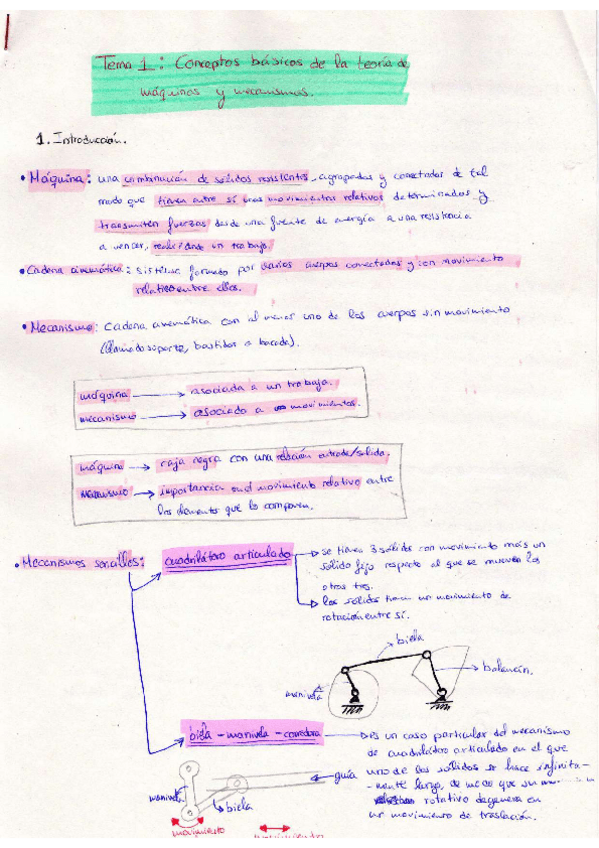 Tema 1: Conceptos básicos de la teoría de
máquinas y mecanismos.
1. Introducción.
• Máquina: una combinación de sólidos resistentes, agrupados y conectados de tal
modo que tienen entre sí unos movimientos relativos determinados y
transmiten fuerzas desde una fuente de energía a una resistencia
a vencer, realizándose un trabajo.
• Cadena cinemática: sistema formado por varios cuerpos conectados y con movimiento
relativo entre ellos.
• Mecanismo: cadena cinemática con al menos uno de los cuerpos sin movimiento
(llamado soporte, bastidor o bancada).
máquina → asociada a un trabajo.
mecanismo → asociado a movimientos.
máquina → caja negra con una relación entrada/salida.
mecanismo → importancia en el movimiento relativo entre
los elementos que lo componen.
• Mecanismos sencillos: cuadrilátero articulado
se tienen 3 sólidos con movimiento más un
sólido fijo respecto al que se mueven los
otros tres.
los sólidos tienen un movimiento de
rotación entre sí.
biela
balancín.
manivela
biela - manivela - corredera
Es un caso particular del mecanismo
de cuadrilátero articulado en el que
uno de los sólidos se hace infinita-
-mente largo, de modo que su
rotativo degenera en
un movimiento de traslación.
guía
manivela
biela
movimiento
movimiento